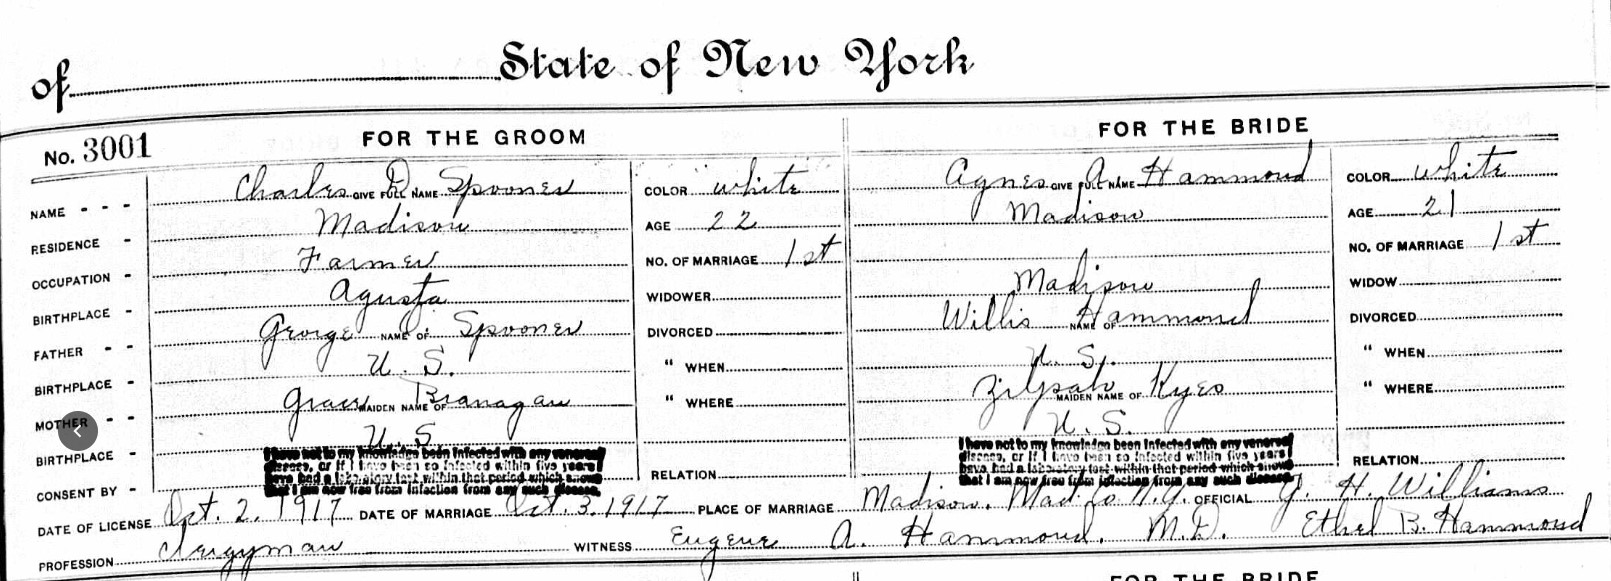 of State of New York
No. 3001 FOR THE GROOM FOR THE BRIDE
NAME - - - Charles D. Spooner GIVE FULL NAME COLOR white Agnes A. Hammond GIVE FULL NAME COLOR white
RESIDENCE - Madison AGE 22 Madison AGE 21
OCCUPATION - Farmer NO. OF MARRIAGE 1st NO. OF MARRIAGE 1st
BIRTHPLACE - Agusta WIDOWER Madison WIDOW
FATHER - - George Spooner NAME OF DIVORCED Willis Hammond NAME OF DIVORCED
BIRTHPLACE - U. S. " WHEN U. S. " WHEN
MOTHER - Grace Branagan MAIDEN NAME OF " WHERE Zilpah Kyes MAIDEN NAME OF " WHERE
BIRTHPLACE - U. S. U. S.
CONSENT BY - RELATION RELATION
I have not to my knowledge been infected with any venereal
disease, or if I have been so infected within five years I
have had a laboratory test within that period which shows
that I am now free from infection from any such disease.
I have not to my knowledge been infected with any venereal
disease, or if I have been so infected within five years I
have had a laboratory test within that period which shows
that I am now free from infection from any such disease.
DATE OF LICENSE Oct. 2, 1917 DATE OF MARRIAGE Oct. 3, 1917 PLACE OF MARRIAGE Madison, Mad. Co. N.Y. OFFICIAL G. H. Williams
PROFESSION Clergyman WITNESS Eugene A. Hammond, M.D. Ethel B. Hammond
FOR THE BRIDE